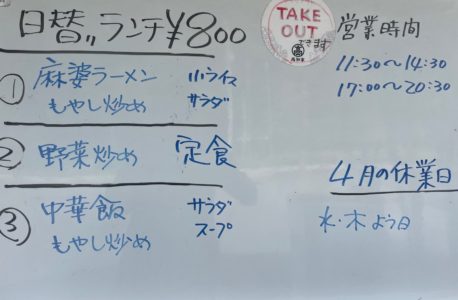 日替わりランチ ¥800
TAKE OUT
できます
① 麻婆ラーメン 小ライス
もやし炒め サラダ
② 野菜炒め 定食
③ 中華飯 サラダ
もやし炒め スープ
営業時間
11:30～14:30
17:00～20:30
4月の休業日
水・木よう日